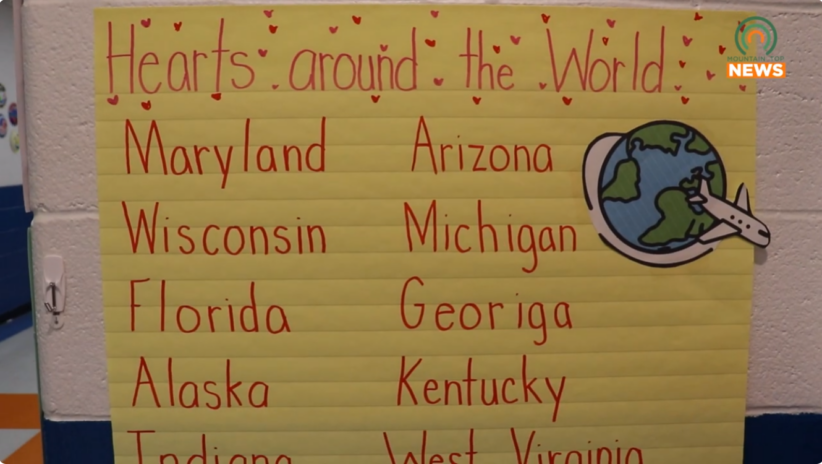 Hearts around the World
MOUNTAIN TOP
NEWS
Maryland Arizona
Wisconsin Michigan
Florida Georiga
Alaska Kentucky
Indiana West Virginia